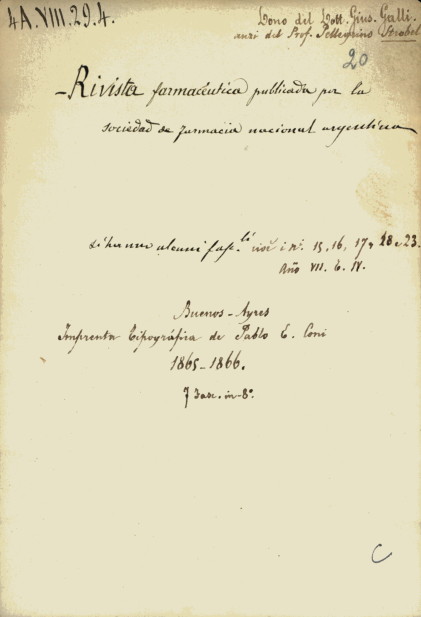 4A.VIII.29.4.
Dono del Dott. Gius. Galli.
anzi del Prof. Pellegrino Strobel
20
- Rivista farmacéutica publicada por la
sociedad de farmacia nacional argentina
si hanno alcuni fasc.li cioè i ni. 15, 16, 17, 18 e 23.
Año VII. t. IV.
Buenos-Ayres
Imprenta tipográfica de Pablo E. Coni
1865-1866.
7 Fasc. in-8°.
C